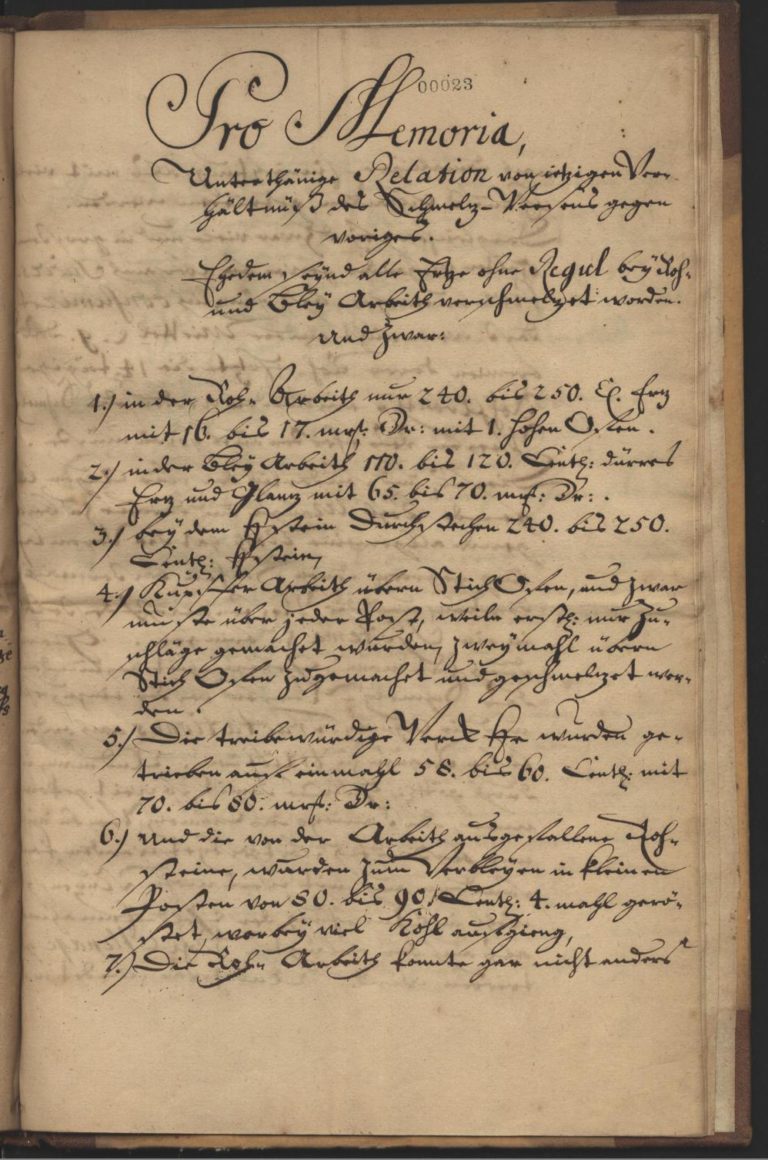 00023
Pro Memoria,
Unterthänige Relation von ietzigen Ver-
hältnüß des Schmeltz-Weesens gegen
voriges.
Ehedem seynd alle Ertze ohne Regul bey Roh-
und Bley Arbeith verschmeltzet worden.
und zwar:
1.) in der Roh- Arbeith nur 240. bis 250. Ertz
mit 16. bis 17. mrk: mit 1. hohen Ofen.
2.) in der Bley Arbeith 110. bis 120. Centn: dürres
Ertz und Glantz mit 65. bis 70. mrk:
3.) bey dem durchstechen 240. bis 250.
Centn:
4.) Kupffer Arbeith übern Stich Ofen, und zwar
muste über jeder Post, weiln erstl: nur Zu-
schläge gemachet wurden, zweymahl übern
Stich Ofen zugemachet und geschmeltzet wer-
den.
5.) Die treibewürdige Werck wurden ge-
trieben auff einmahl 58. bis 60. Centn: mit
70. bis 80. mrk:
6.) und die von der Arbeith ausgefallene Roh-
steine, wurden zum Verbleyen in kleinen
Posten von 80. bis 90. Centn: 4. mahl gerö-
stet, worbey viel Kohl auffgieng,
7.) Die Roh- Arbeith konnte gar nicht anders